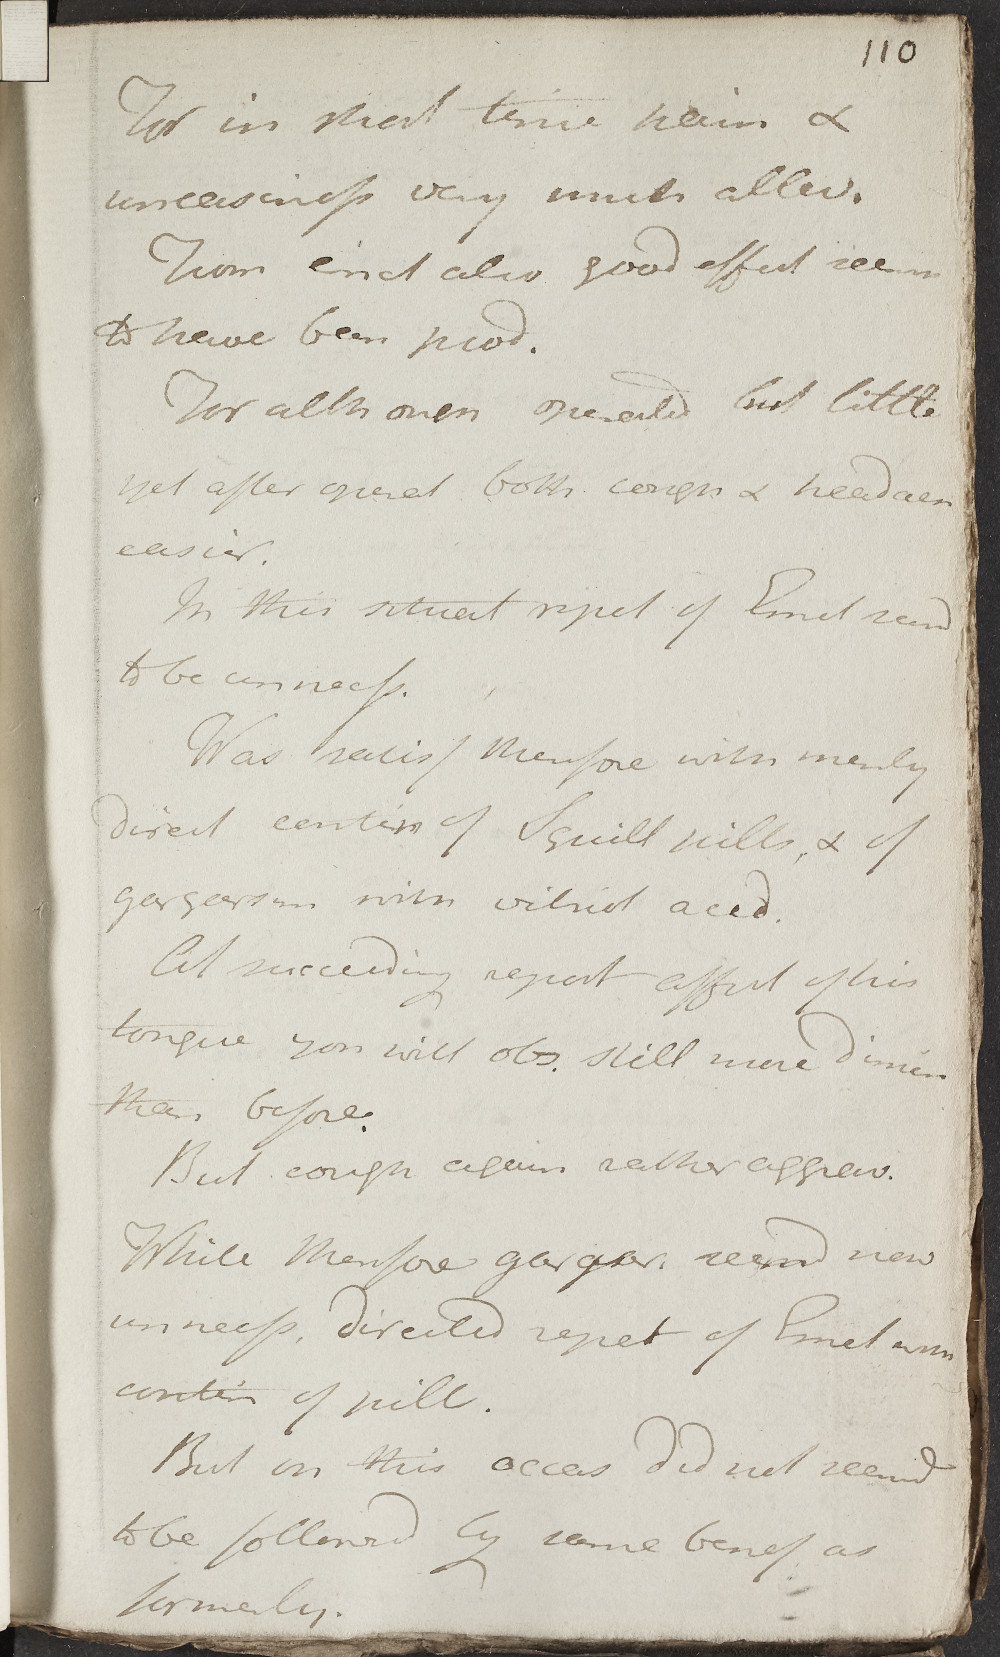 110
For in short time pain &
uneasiness very much allev.
From emet also good effect seem
to have been prod.
For altho even operated but little
yet after operat both cough & headach
easier.
In this situat repet of Emet seemd
to be unness.
Was satisf therefore with merely
direct contin of Squill pills, & of
gargarism with vitriol acid.
At succeeding report affect of his
tongue you will obs. still more dimin
than before.
But cough again rather aggrav.
While therefore gargar. seemd now
unness, directed repet of Emet with
contin of pill.
But on this occas did not seemd
to be followd by same benef as
formerly.